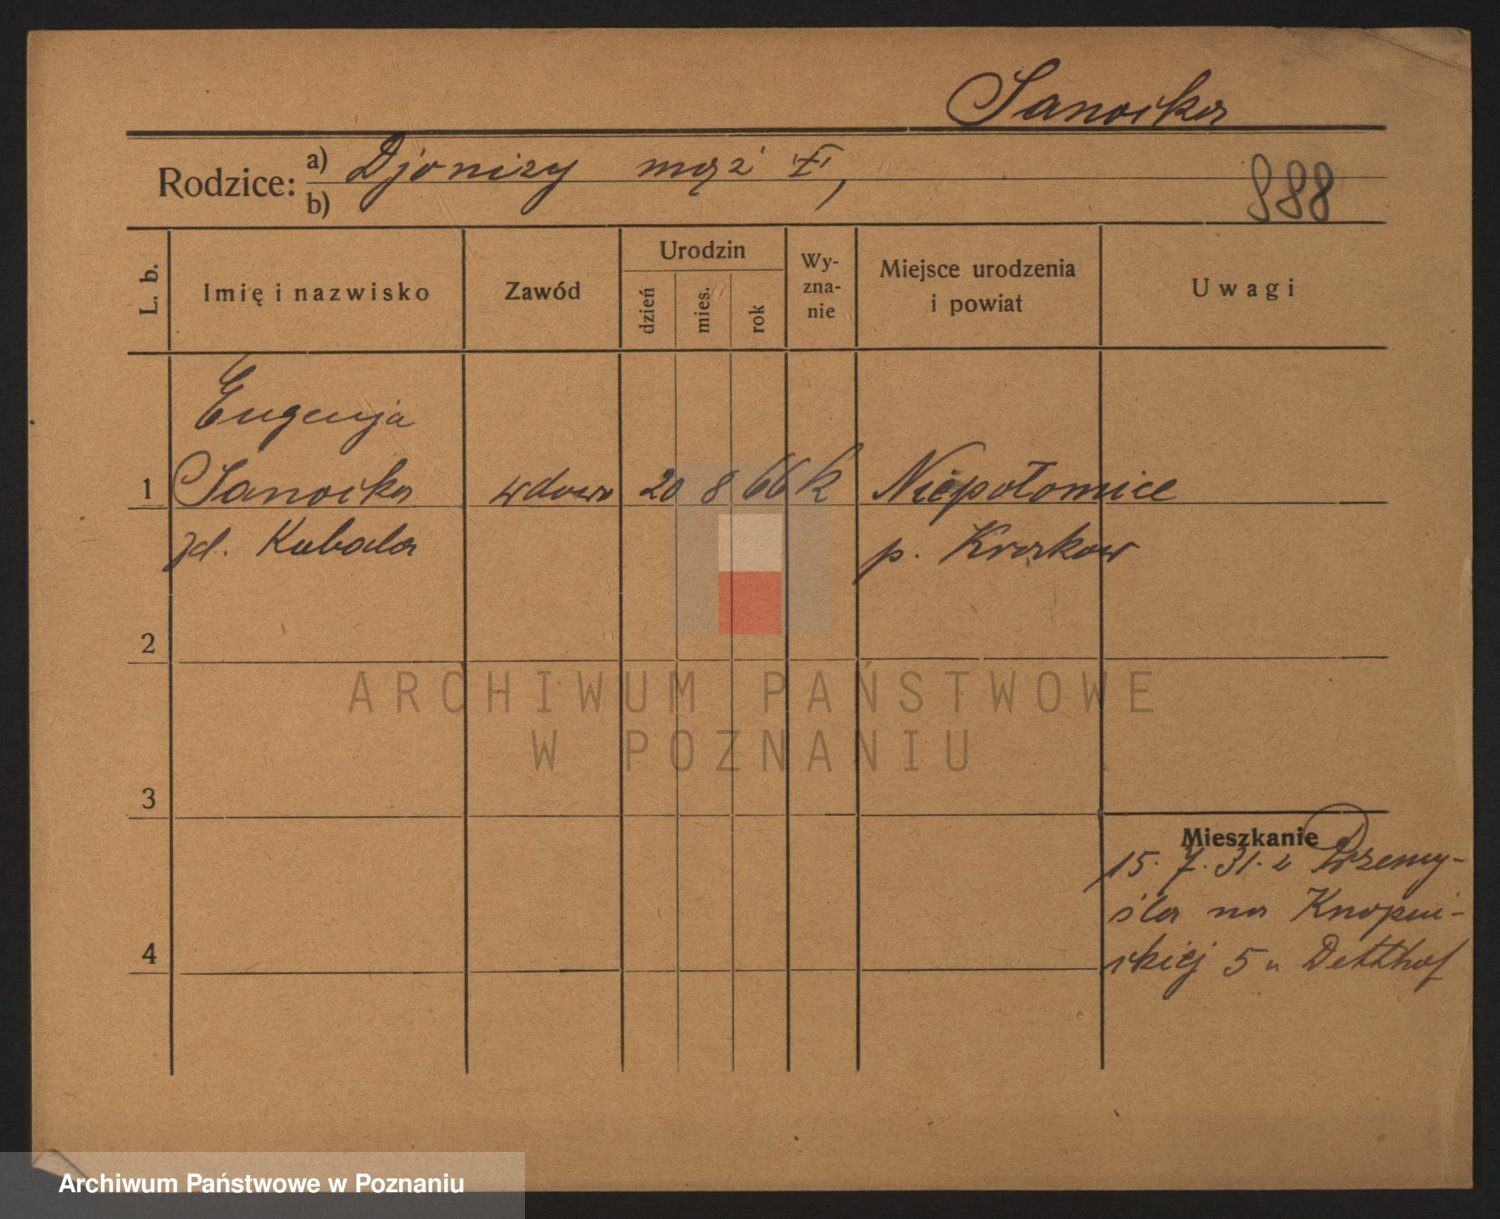 Sanocka
Rodzice: a) Djonizy mąż
b)
888
L. b.
Imię i nazwisko
Zawód
Urodzin
dzień
mies.
rok
Wy-
zna-
nie
Miejsce urodzenia
i powiat
Uwagi
Eugenja
1 Sanocka wdowa 20 8 66 k Niepołomice
zd. Kubala p. Krakow
2
3
4
Mieszkanie
15.7.31. z Przemy-
śla na Knapow-
skiej 5 u
ARCHIWUM PAŃSTWOWE
W POZNANIU
Archiwum Państwowe w Poznaniu